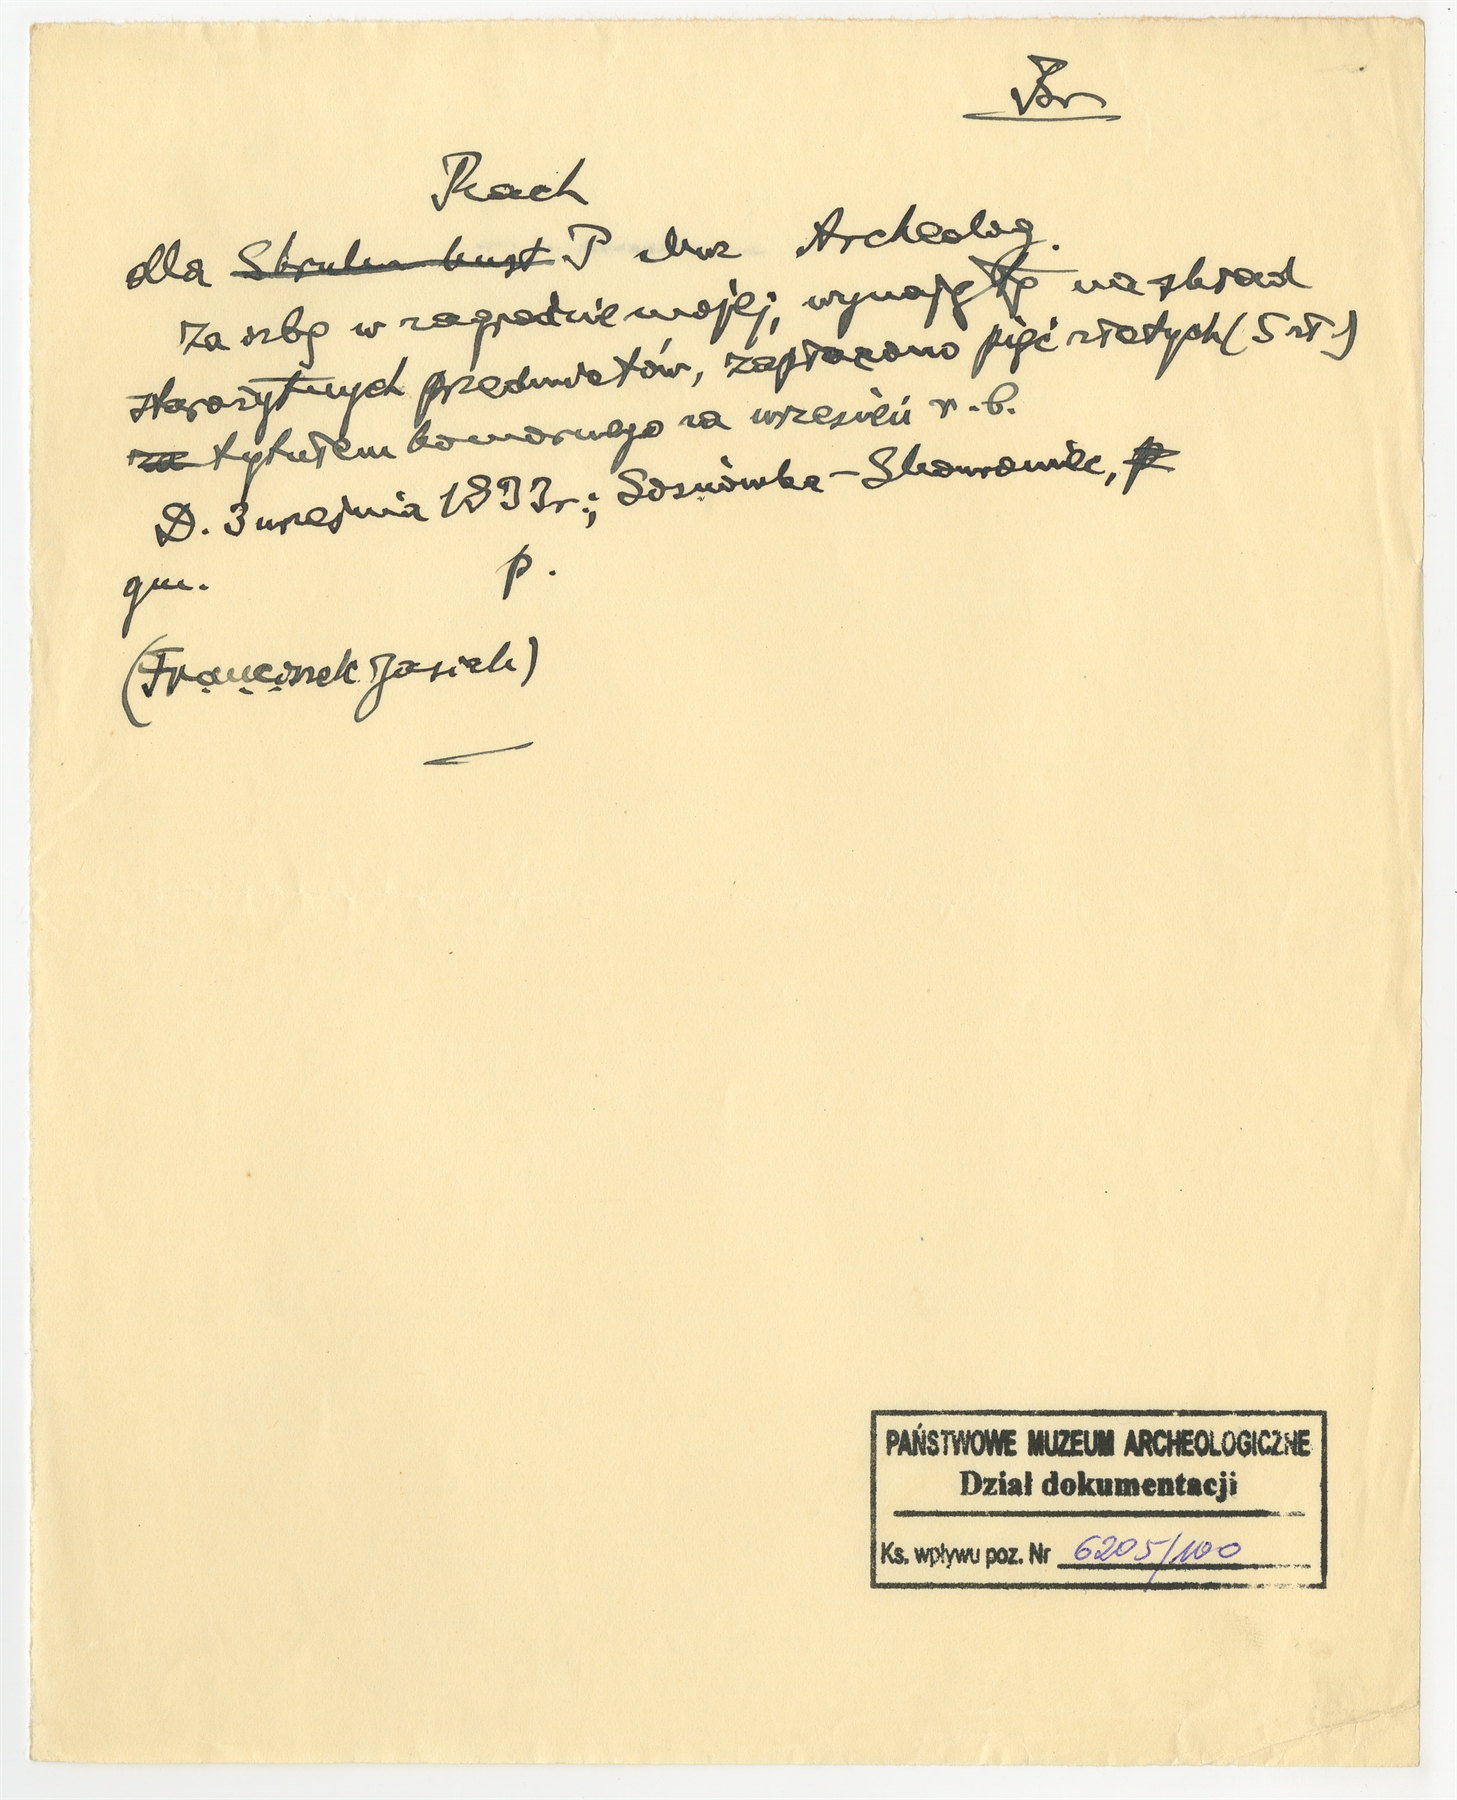 Rach
dla P Muz Archeolog.
Za izbę w zagrodzie mojej, wynajętę na skład
starożytnych przedmiotów, zapłacono pięć złotych (5 zł.)
za tytułem komornego za wrzesień r. b.
D. 3 września 1933 r.; Sosnówka - Skowroniec,
gm. p.
(Franciszek Jasiek)
PAŃSTWOWE MUZEUM ARCHEOLOGICZNE
Dział dokumentacji
Ks. wpływu poz. Nr 6205/100